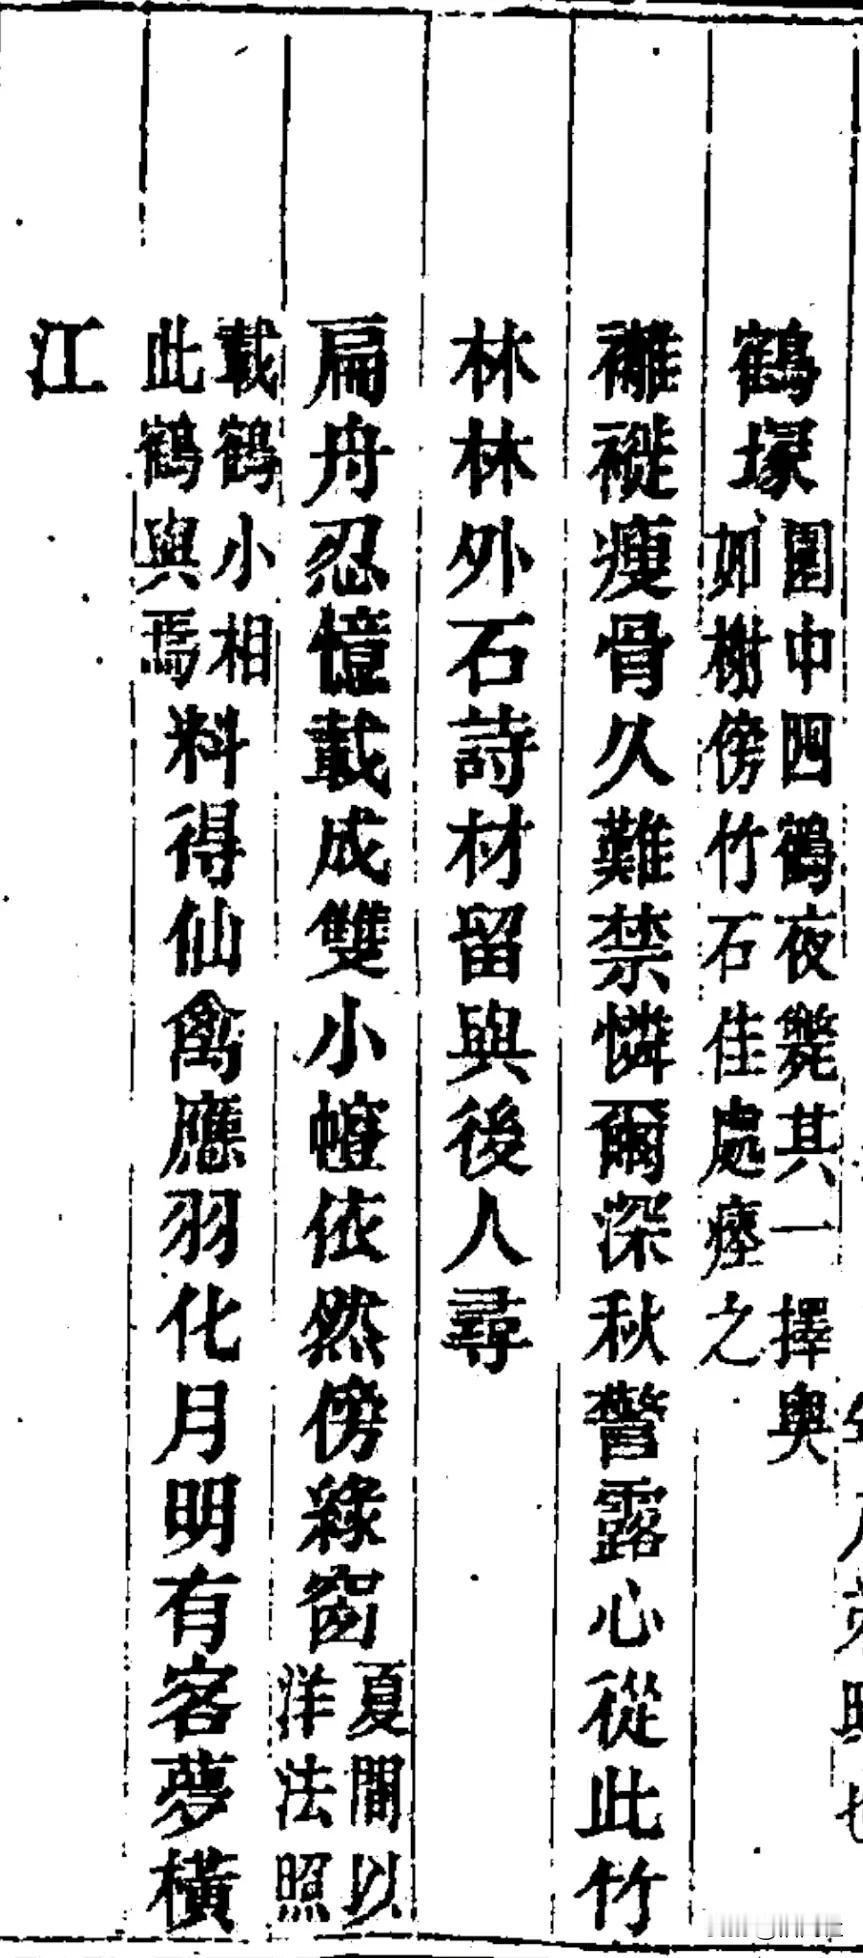 鶴塚
園中四鶴夜斃其一擇奧
如榭傍竹石佳處瘞之
䙰褷瘦骨久難禁憐爾深秋警露心從此竹
林林外石詩材留與後人尋
扁舟忍憶載成雙小㡧依然傍綠窗
夏間以
洋法照
載鶴小相
此鶴與焉
料得仙禽應羽化月明有客夢橫
江